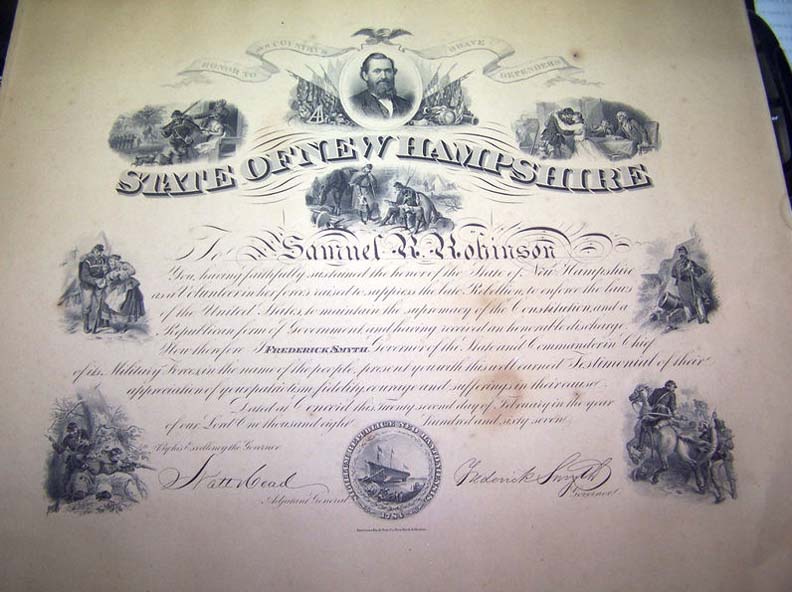 HONOR TO OUR COUNTRY'S BRAVE DEFENDERS
STATE OF NEW HAMPSHIRE
To Samuel R. Robinson
You, having faithfully sustained the honor of the State of New Hampshire
as a Volunteer in her forces raised to suppress the late Rebellion, to enforce the laws
of the United States, to maintain the supremacy of the Constitution, and a
Republican form of Government, and having received an honorable discharge
Now therefore I FREDERICK SMYTH Governor of the State and Commander in Chief
of its Military Forces, in the name of the people, present you with this well earned Testimonial of their
appreciation of your patriotism, fidelity, courage and sufferings in their cause.
Dated at Concord this Twenty second day of February in the year
of our Lord One thousand eight hundred and sixty seven
By his Excellency the Governor
Natt Head
Adjutant General
SIGILLUM REIPUBLICÆ NEO HANTONIENSIS
1784
Frederick Smyth
Governor